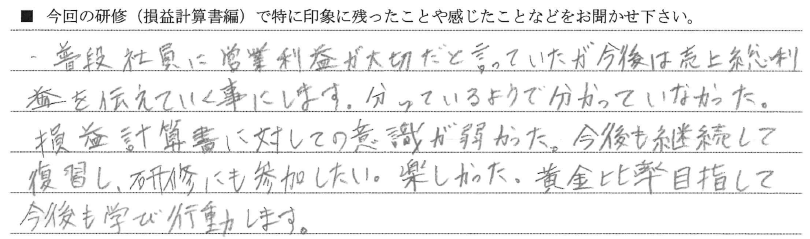 ■ 今回の研修（損益計算書編）で特に印象に残ったことや感じたことなどをお聞かせ下さい。
・普段社員に営業利益が大切だと言っていたが今後は売上総利
益を伝えていく事にします。分っているようで分かっていなかった。
損益計算書に対しての意識が弱かった。今後も継続して
復習し、研修にも参加したい。楽しかった、黄金比率目指して
今後も学び行動します。